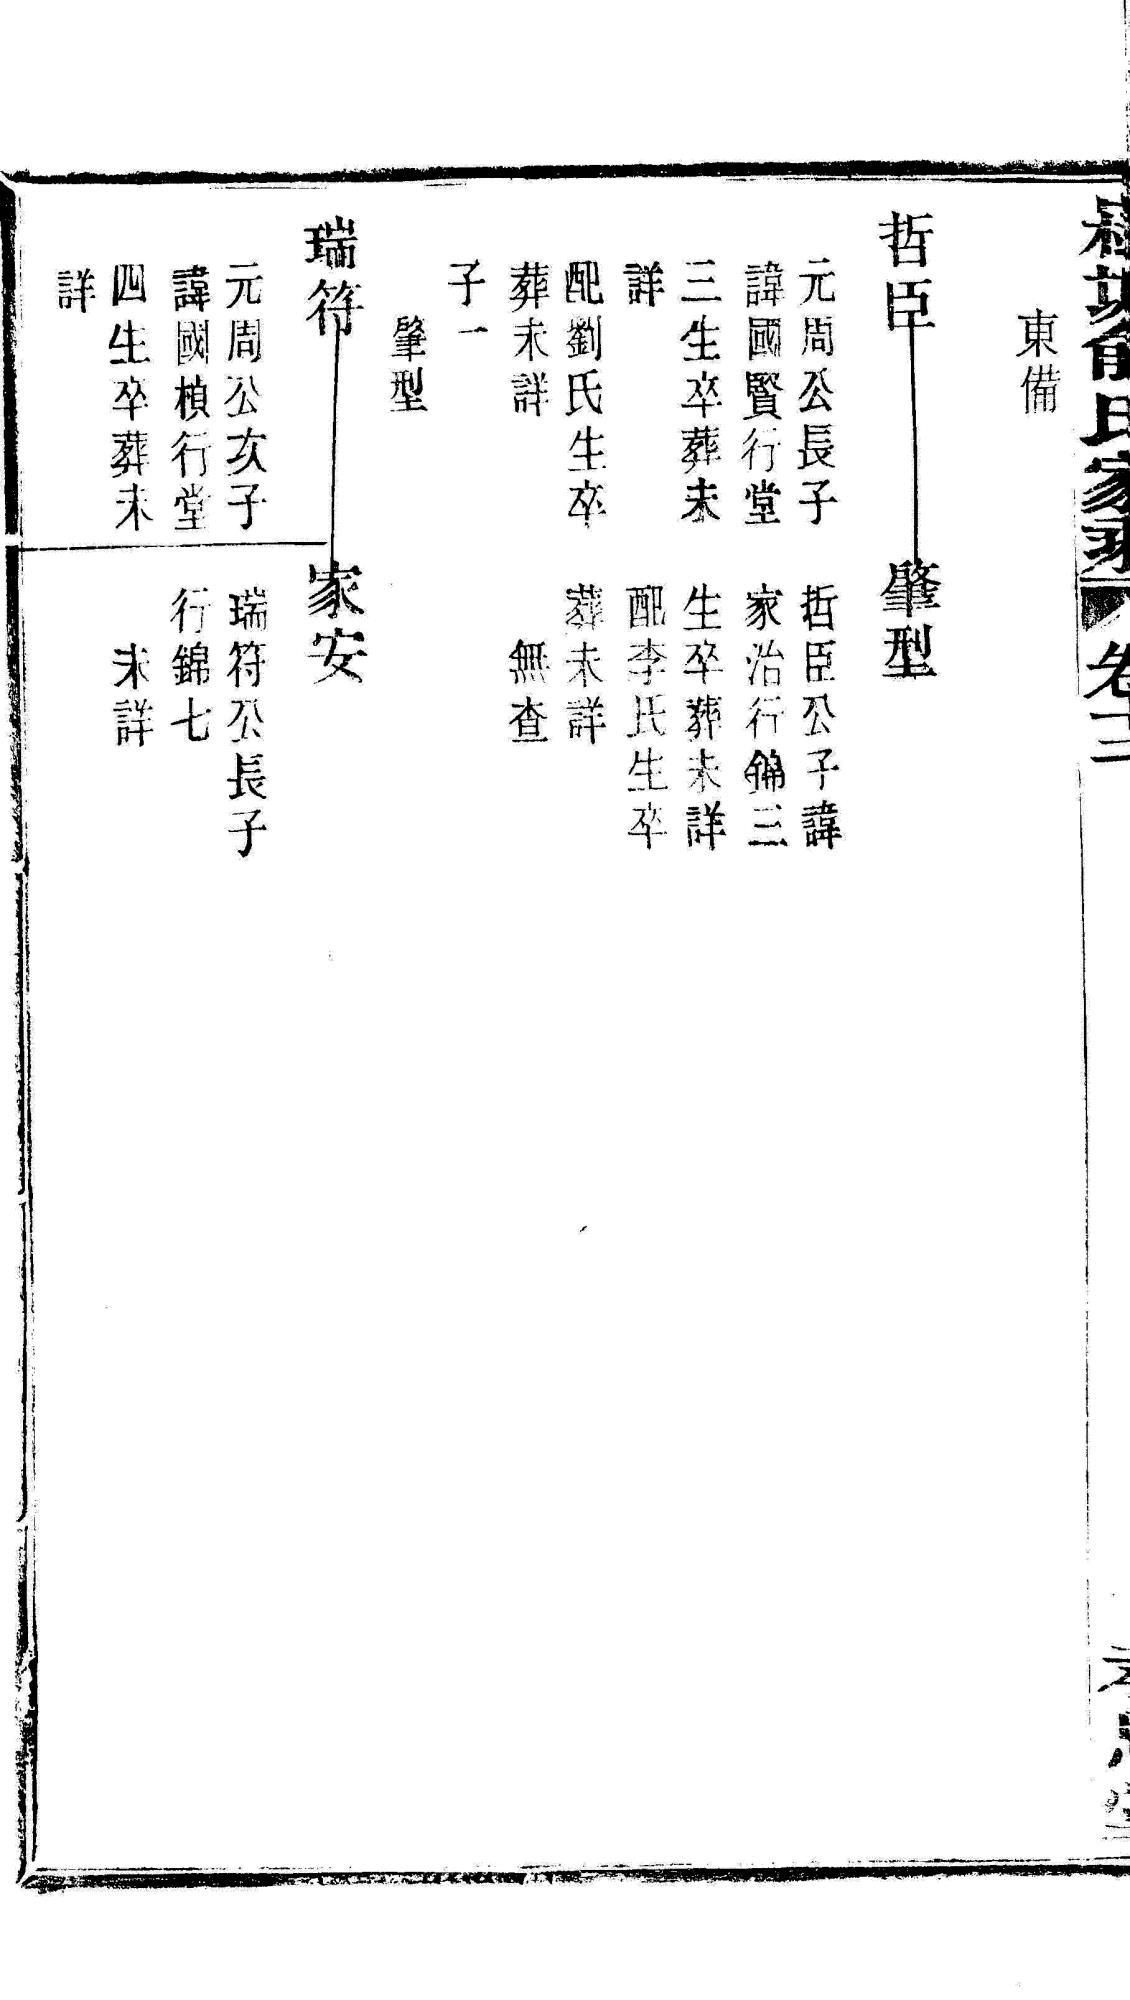 氏家
卷十三
東備
哲臣
元周公長子
諱國賢行堂
三生卒葬未
詳
配劉氏生卒
葬未詳
子一
肇型
肇型
哲臣公子諱
家治行錦三
生卒葬未詳
配李氏生卒
葬未詳
無查
瑞符
元周公次子
諱國楨行堂
四生卒葬未
詳
家安
瑞符公長子
行錦七
未詳